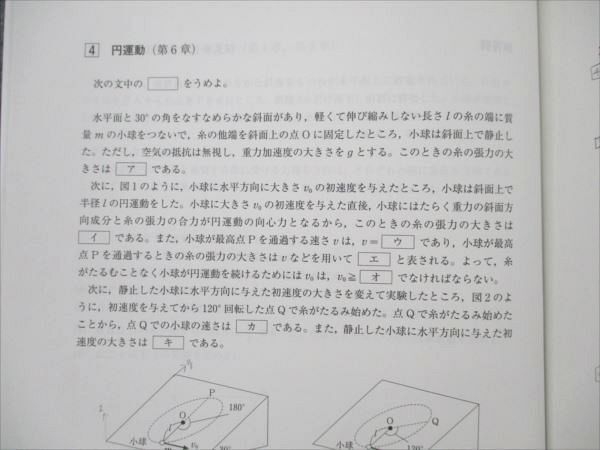 4 円運動（第6章）
次の文中の［　］をうめよ。
水平面と30°の角をなすなめらかな斜面があり，軽くて伸び縮みしない長さlの糸の端に質
量mの小球をつないで，糸の他端を斜面上の点Oに固定したところ，小球は斜面上で静止し
た。ただし，空気の抵抗は無視し，重力加速度の大きさをgとする。このときの糸の張力の大
きさは ア である。
次に，図1のように，小球に水平方向に大きさv₀の初速度を与えたところ，小球は斜面上で
半径lの円運動をした。小球に大きさv₀の初速度を与えた直後，小球にはたらく重力の斜面方
向成分と糸の張力の合力が円運動の向心力となるから，このときの糸の張力の大きさは
イ である。また，小球が最高点Pを通過する速さvは，v＝ ウ であり，小球が最高
点Pを通過するときの糸の張力の大きさはvなどを用いて エ と表される。よって，糸
がたるむことなく小球が円運動を続けるためにはv₀は，v₀≧ オ でなければならない。
次に，静止した小球に水平方向に与えた初速度の大きさを変えて実験したところ，図2のよ
うに，初速度を与えてから120°回転した点Qで糸がたるみ始めた。点Qで糸がたるみ始めた
ことから，点Qでの小球の速さは カ である。また，静止した小球に水平方向に与えた初
速度の大きさは キ である。
P
O
180°
l
小球
v₀
30°
O
Q
l
小球
120°